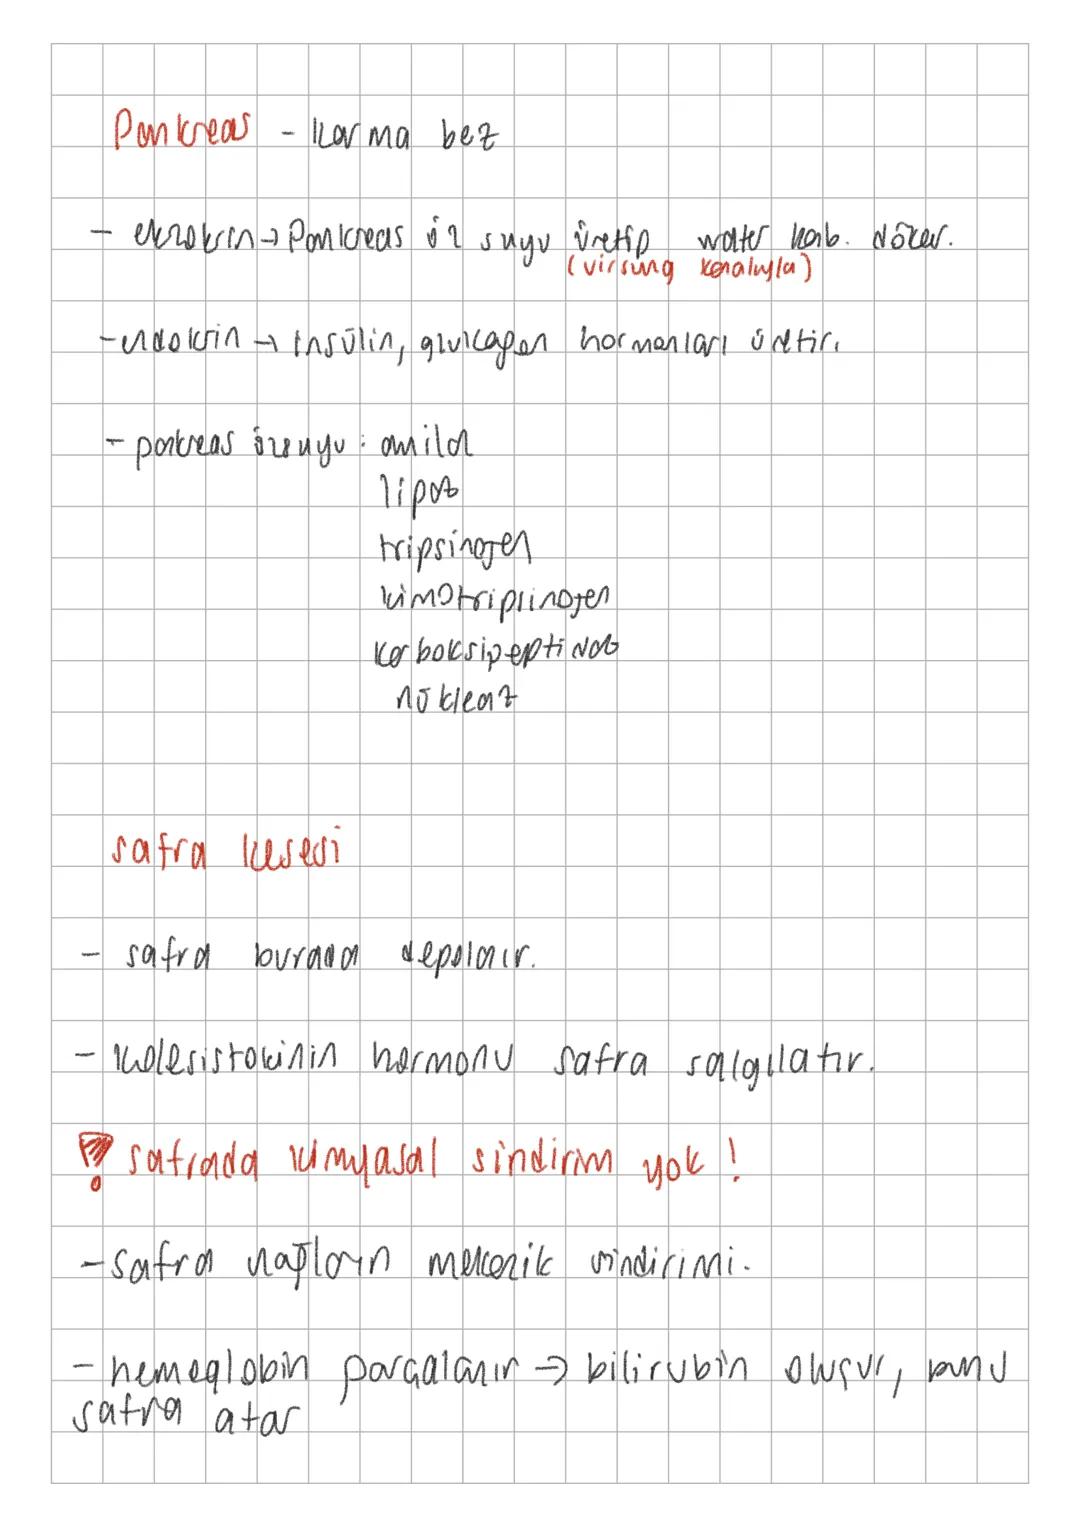 Pankreas - karma bez
- ekzokrin → Pankreas öz suyu üretip water kab. döker.
(virsung kanalıyla)
- endokrin → insülin, glukagon hormonları üretir.
- pankreas özsuyu : amilaz
lipaz
tripsinojen
kimotripsinojen
karboksipeptidaz
nükleaz
safra kesesi
- safra burada depolanır.
- kolesistokinin hormonu safra salgılatır.
! safrada kimyasal sindirim yok !
- safra yağların mekanik sindirimi.
- hemoglobin parçalanır → bilirubin oluşur, bunu
safra atar